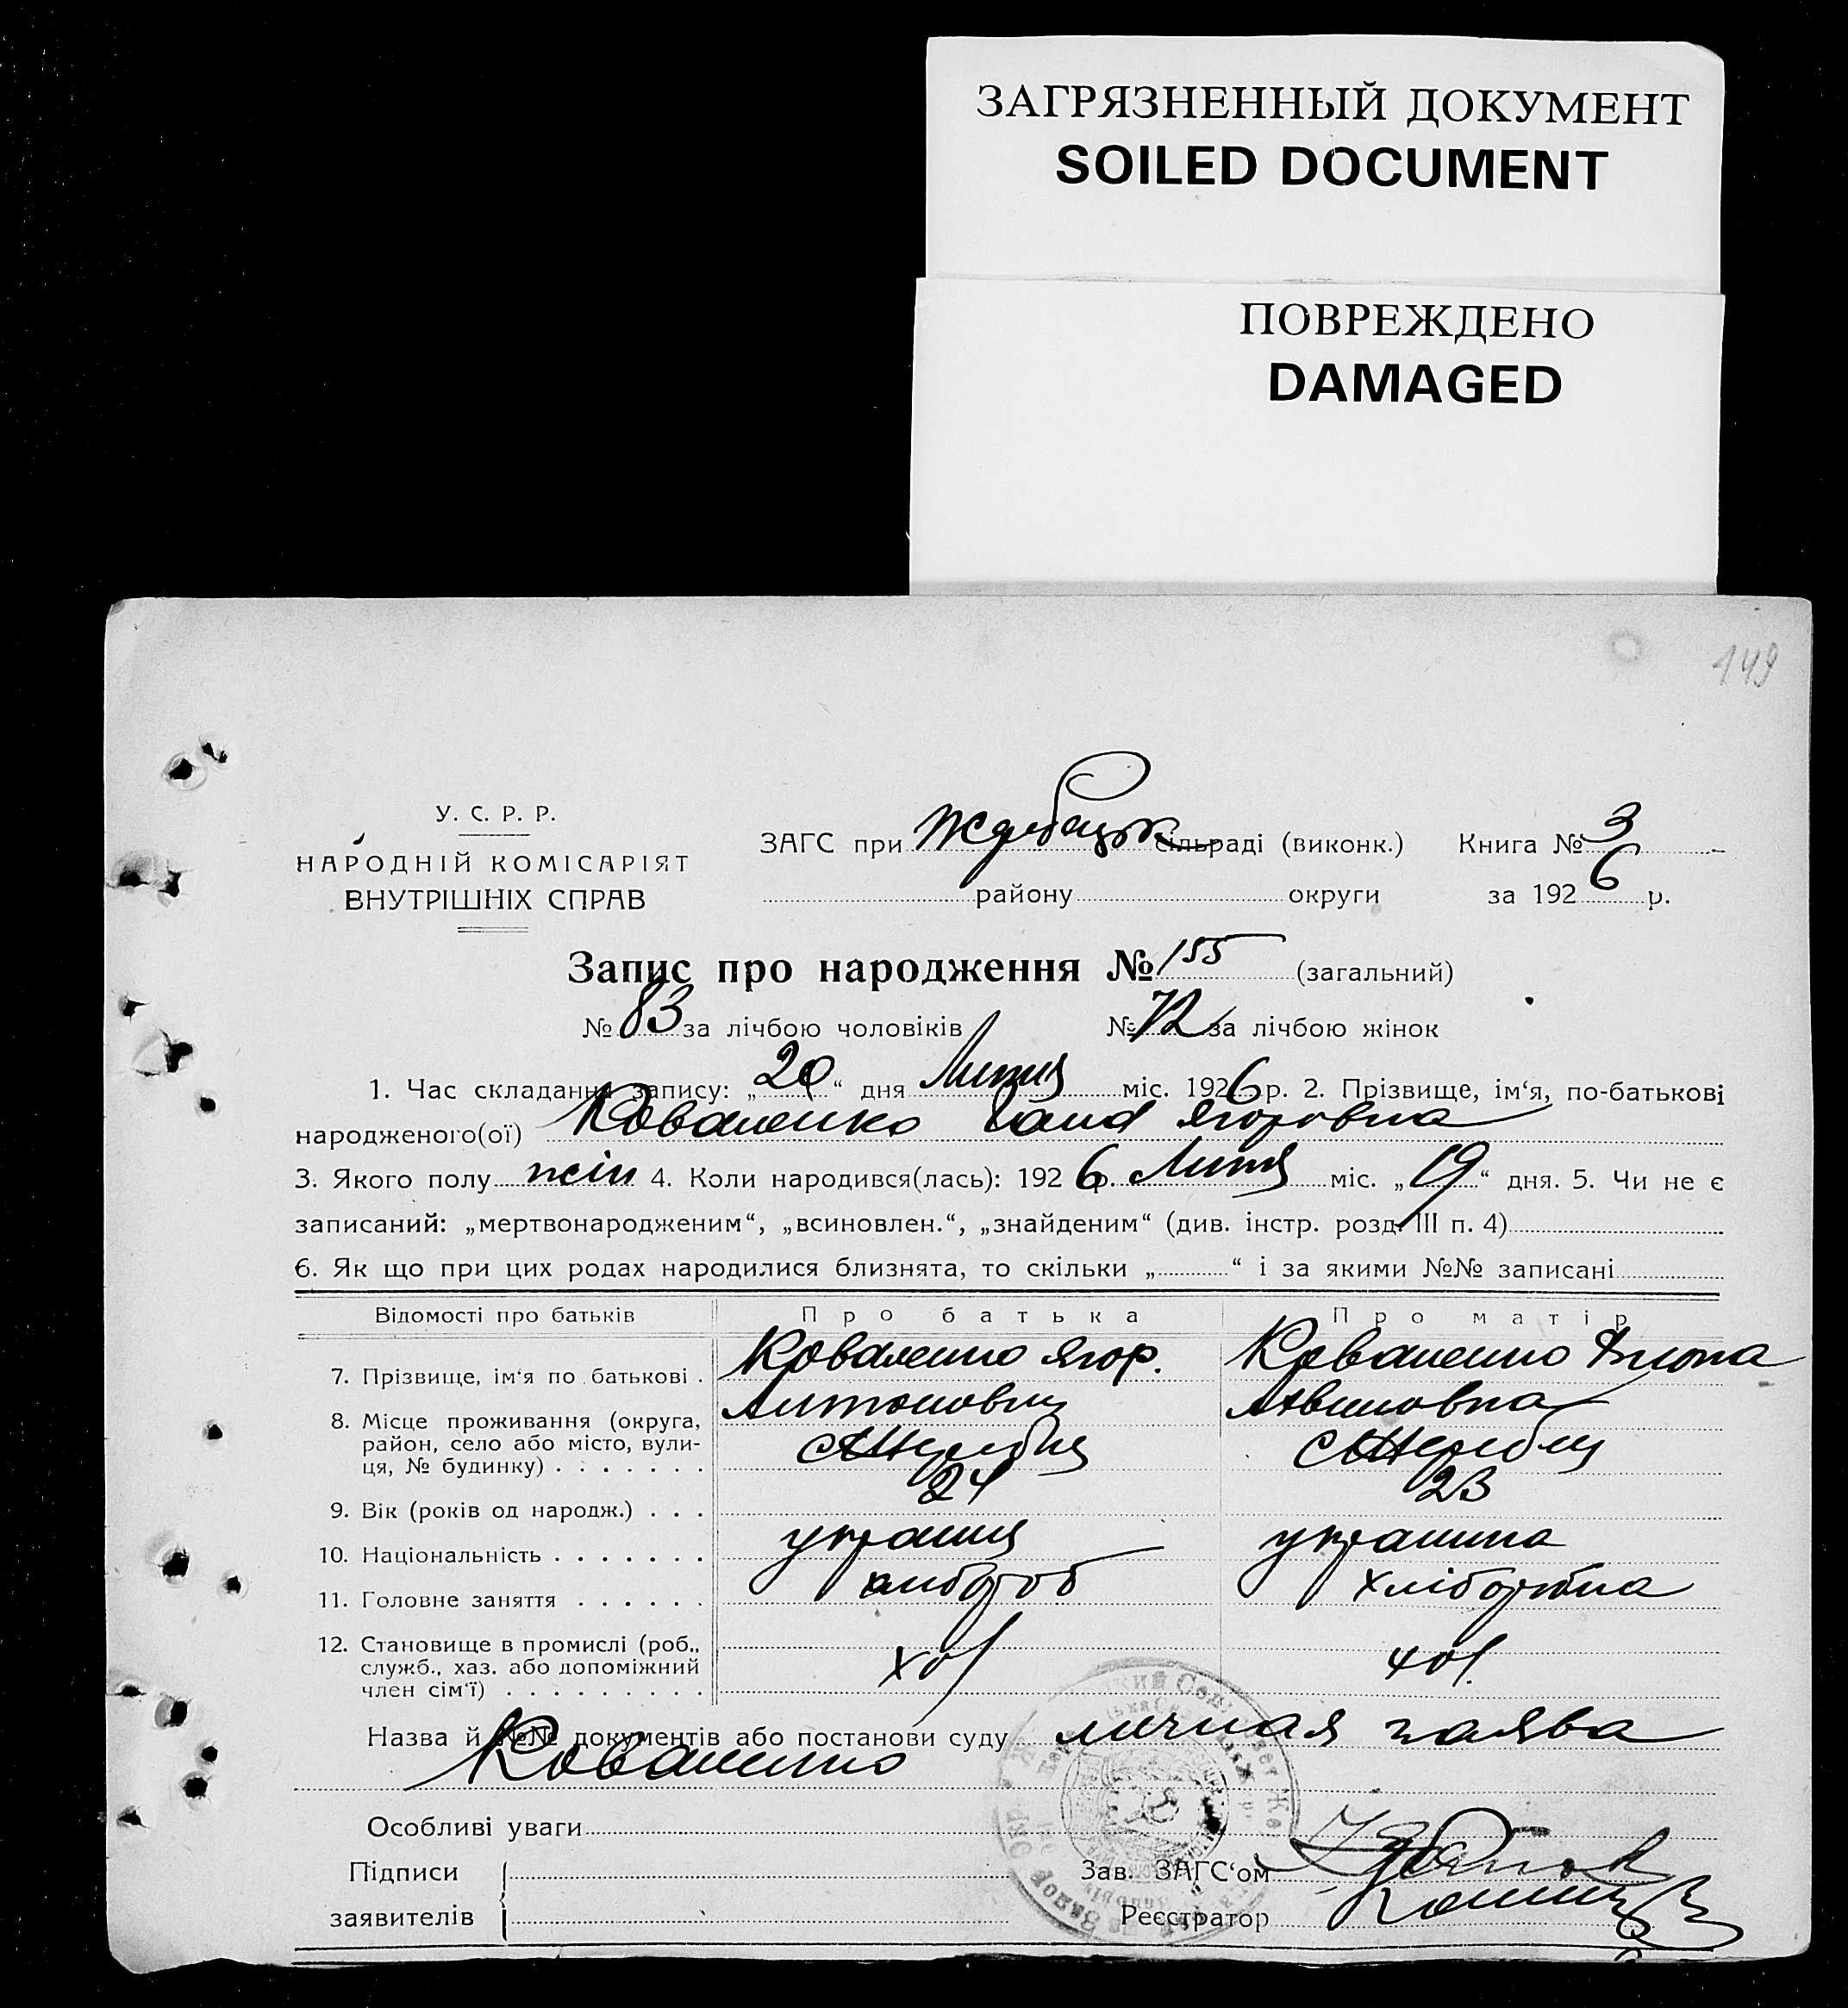 ЗАГРЯЗНЕННЫЙ ДОКУМЕНТ
SOILED DOCUMENT
ПОВРЕЖДЕНО
DAMAGED
149
У. С. Р. Р.
НАРОДНІЙ КОМІСАРІЯТ
ВНУТРІШНІХ СПРАВ
ЗАГС при сільраді (виконк.) Книга № 3
району округи за 1926 р.
Запис про народження № 155 (загальний)
№ 83 за лічбою чоловіків № 72 за лічбою жінок
1. Час складання запису: „20“ дня міс. 1926 р. 2. Прізвище, ім‘я, по-батькові
народженого(ої) Коваленко Ганя Ягоровна
3. Якого полу жін 4. Коли народився(лась): 1926 р. міс. „19“ дня. 5. Чи не є
записаний: „мертвонародженим“, „всиновлен.“, „знайденим“ (див. інстр. розд. III п. 4)
6. Як що при цих родах народилися близнята, то скільки „ “ і за якими №№ записані
Відомості про батьків Про батька Про матір
7. Прізвище, ім‘я по батькові . Коваленко Ягор. Коваленко
Антонович
8. Місце проживання (округа,
район, село або місто, вули-
ця, № будинку) . . . . . . .
9. Вік (років од народж.) . . . 24 23
10. Національність . . . . . . . украинц украинка
11. Головне заняття . . . . . . хлібороб хліборобка
12. Становище в промислі (роб.,
служб., хаз. або допоміжний
член сім‘ї) . . . . . . . . .
Назва й №№ документів або постанови суду личная заява
Коваленко
Особливі уваги
Підписи
заявителів
Зав. ЗАГС‘ом
Реєстратор